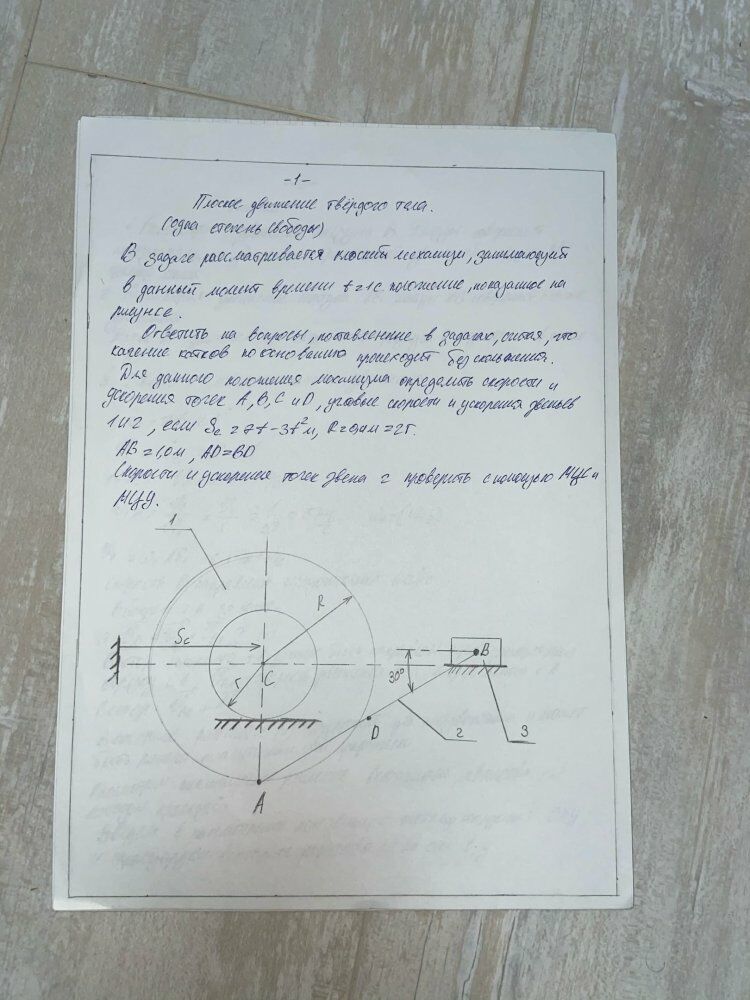 -1-
Плоское движение твёрдого тела.
(одна степень свободы)
В задаче рассматривается плоский механизм, занимающий
в данный момент времени t=1с положение, показанное на
рисунке.
Ответить на вопросы, поставленные в задачах, считая, что
качение катков по основанию происходит без скольжения.
Для данного положения механизма определить скорости и
ускорения точек A, B, C и D, угловые скорости и ускорения звеньев
1 и 2, если Sc = 7t-3t² м, R=0,4м=2r.
AB=1,0м, AD=BD
Скорости и ускорения точек звена 2 проверить с помощью МЦС и
МЦУ.
1
R
Sc
C
r
B
30°
D
2
3
A